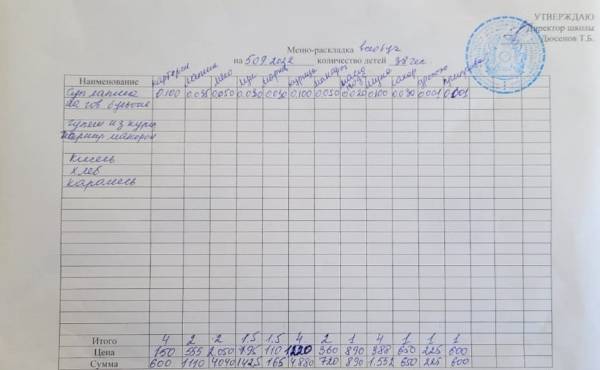 УТВЕРЖДАЮ
Директор школы
Дюсенов Т.Б.
Меню-раскладка
на 5092022 количество детей 38 чел
Наименование картофель лапша мясо лук морковь курица томат масло сахар
Суп лапша 0.100 0.035 0.050 0.030 0.030 0.100 0.050 0.020 0.100 0.030 0.001 0.001
на гов. бульоне
гуляш из куры
гарнир макароны
Кисель
Хлеб
карамель
Итого 4 2 2 1.5 1.5 4 2 1 4 1 1 1
Цена 150 555 2050 110 1220 360 890 388 650 225 600
Сумма 600 1110 1425 165 4880 720 890 1.552 650 225 600